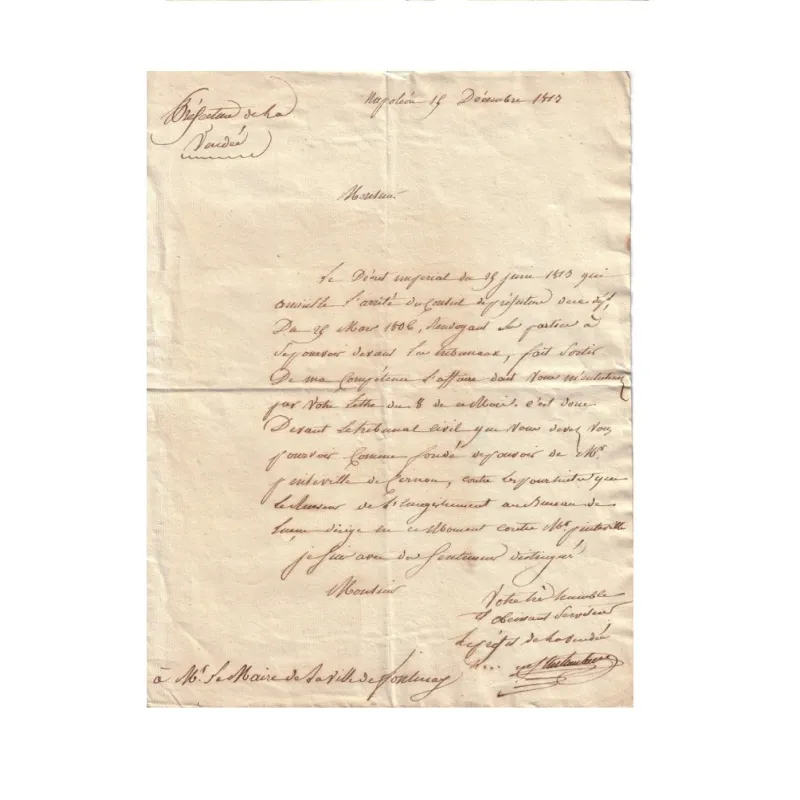 Préfecture de La
Vendée
Napoléon 15 Décembre 1813
Monsieur
Le Décret impérial du 25 juin 1813 qui
annulle l'arrêté du Conseil de préfecture de ce dépt.
Du 25 Mars 1806, Renvoyant les parties à
se pourvoir devant les tribunaux, fait Sortir
De ma Compétence l'affaire dont Vous m'entretenez
par Votre Lettre du 8 de ce Mois. c'est donc
Devant le tribunal Civil que Vous devez Vous
pourvoir Comme fondé de pouvoir de Mr.
pinteville de Cernon, contre les poursuites que
le Receveur de l'Enregistrement au Bureau de
dirige en ce Moment contre Mr. pinteville
je suis avec des Sentimens distingués
Monsieur
Votre très humble
et obéissant Serviteur
Le préfet de la Vendée
à Mr. Le Maire de La Ville de fontenay